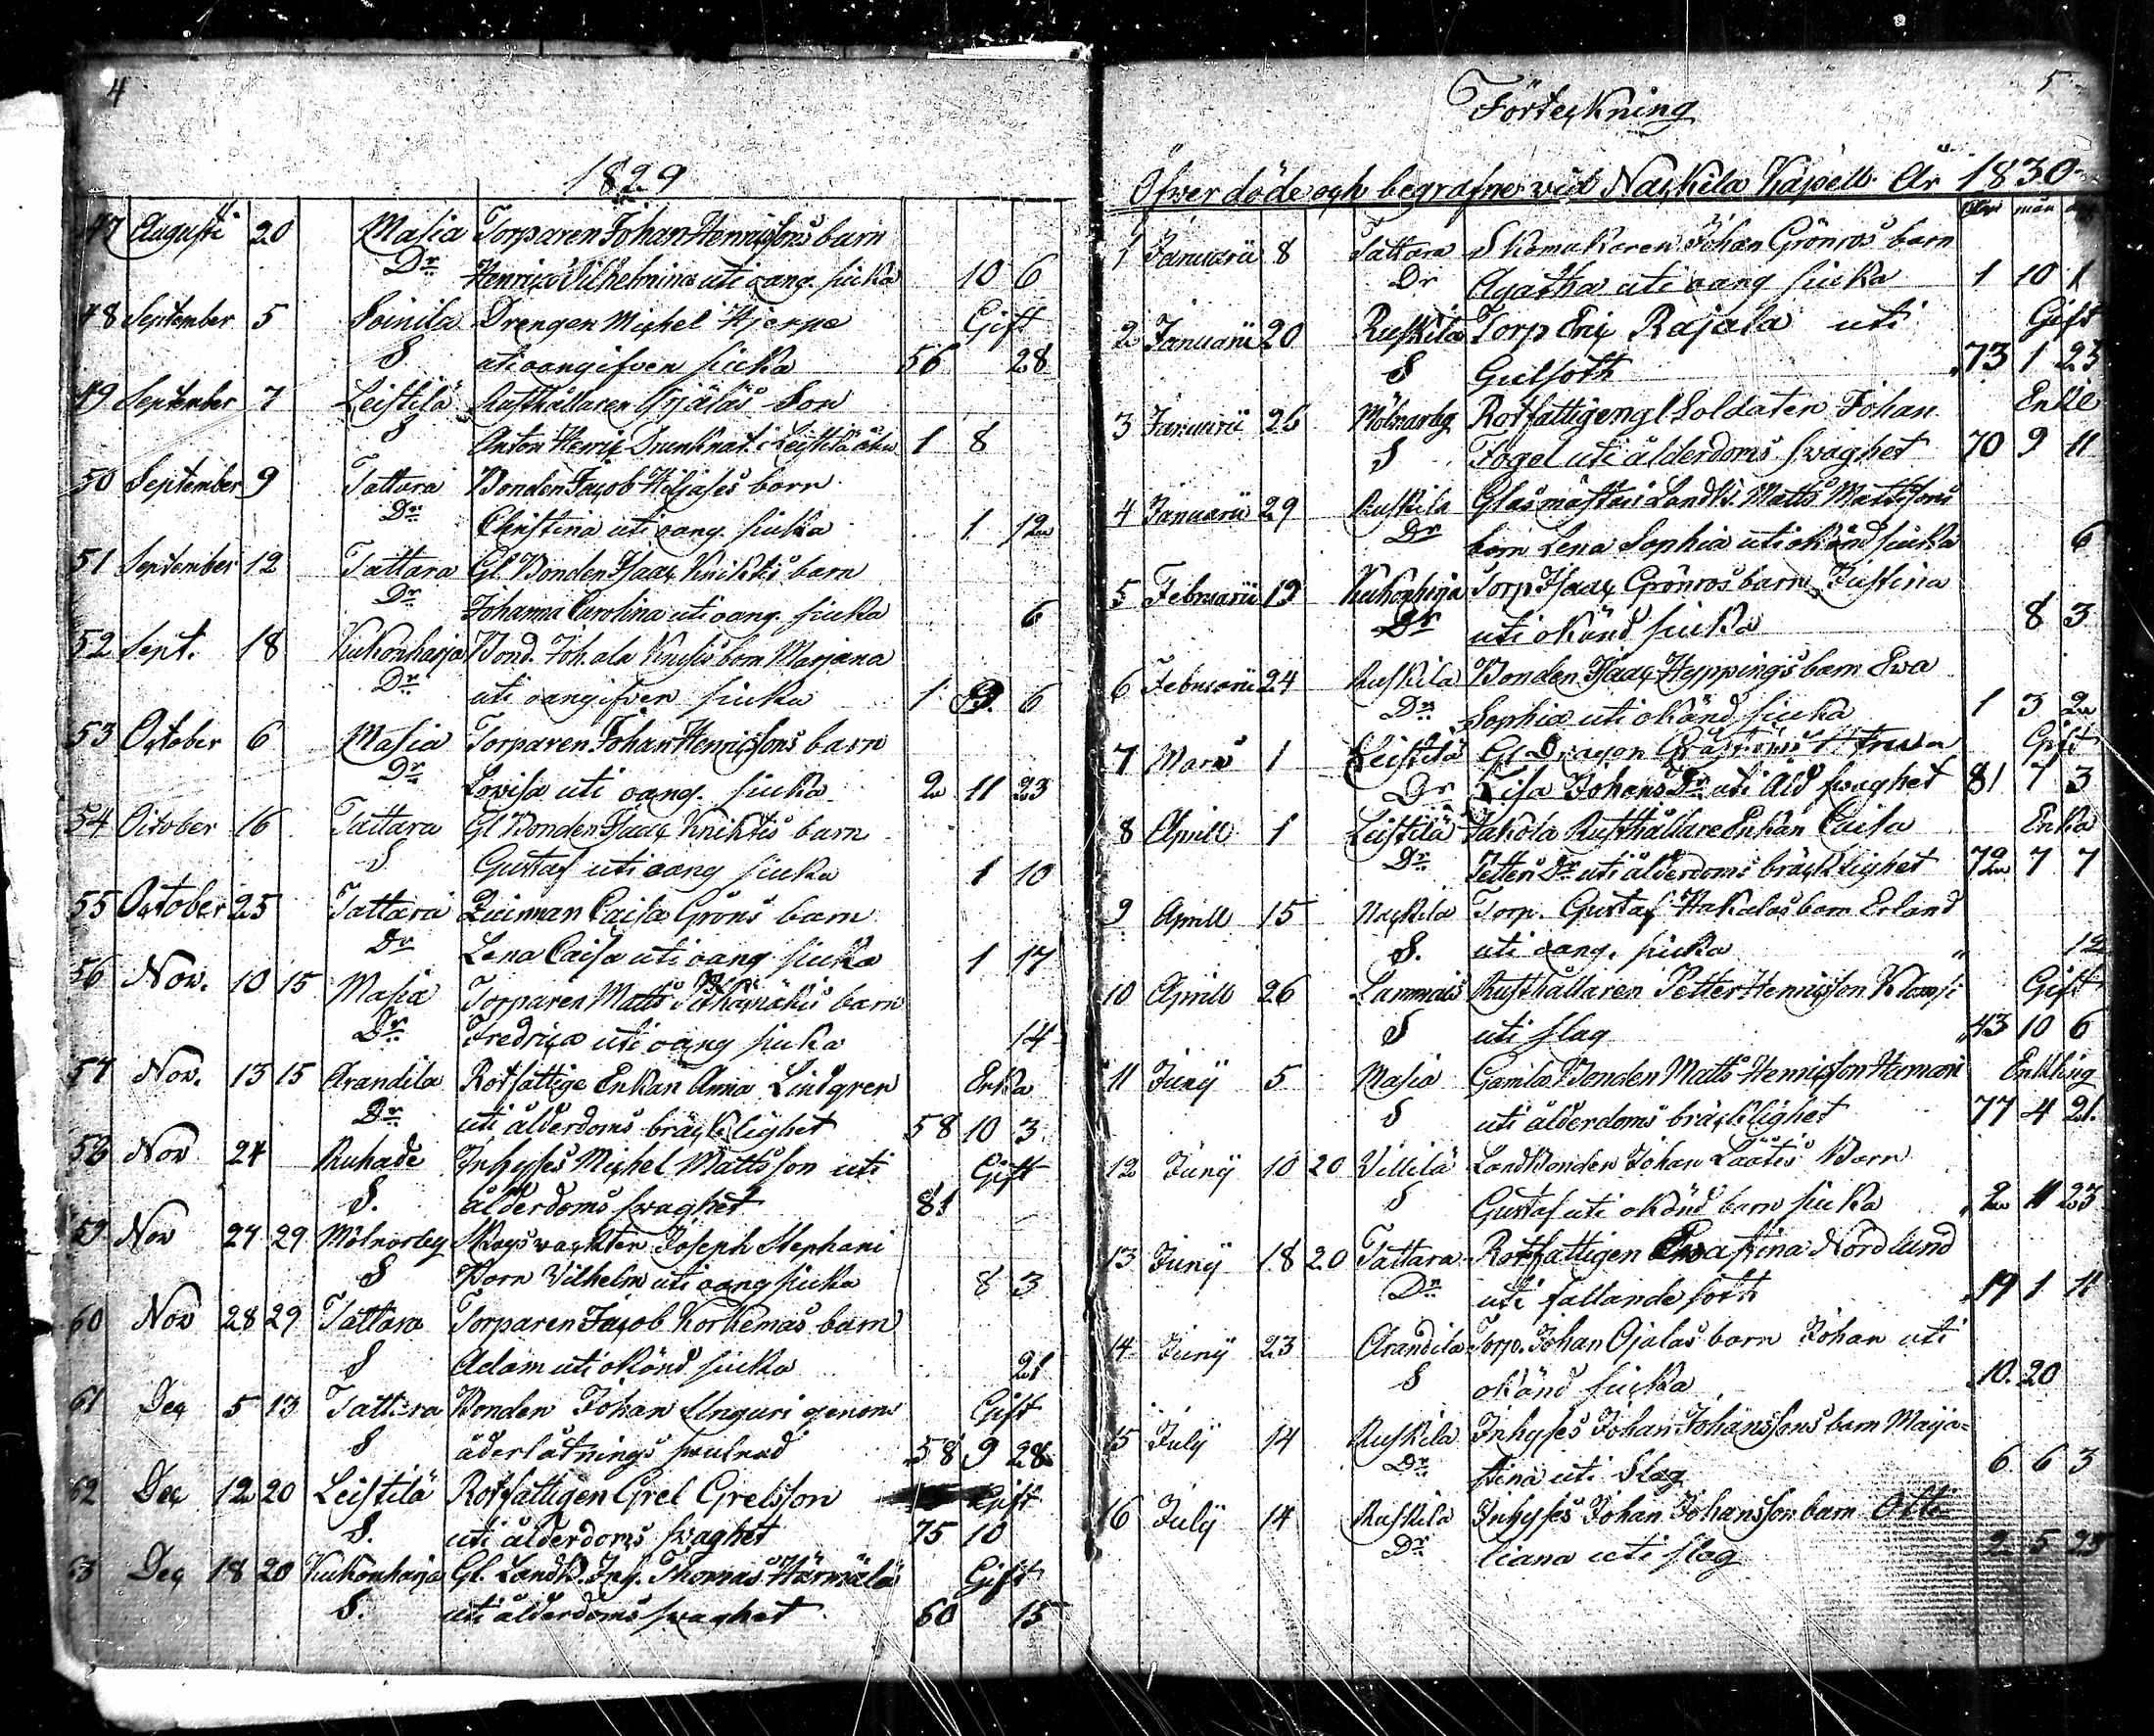 4
1829
47 Augusti 20 Masia Torparen Johan Henricssons barn
Dr Henrica Vilhelmina uti oang. siuka 10 6
48 September 5 Soinila Drengen Michel Hjerpe Gift
S uti oangifven siuka 56 28
49 September 7 Leistilä Rusthållaren Son
S Anton Henric Drunknat i Leistilä å 1 8
50 September 9 Tattara Bonden Jacob Hiljases barn
Dr Christina uti oang. siuka 1 12
51 September 12 Tattara Gl. Bonden Isaac Knihtis barn
Dr Johanna Carolina uti oang. siuka 6
52 Sept. 18 Kukonharja Bond. Joh. ala barn Marjana
Dr uti oangifven siuka 1 9 6
53 October 6 Masia Torparen Johan Henricssons barn
Dr Lovisa uti oang. siuka 2 11 23
54 October 16 Tattara Gl Bonden Isaac Knihtis barn
S Gustaf uti oang siuka 1 10
55 October 25 Tattara Caisa Gröns barn
Dr Lena Caisa uti oang siuka 1 17
56 Nov. 10 15 Masia Torparen Matts barn
Dr Fredrica uti oang siuka 14
57 Nov. 13 15 Arandila Rotfattige Enkan Anna Lindgren Enka
Dr uti ålderdoms bräcklighet 58 10 3
58 Nov 24 Ruhade Inhyses Michel Mattsson uti Gift
S. ålderdoms swaghet 81
59 Nov 27 29 Mölnorby Skogswackten Joseph Stephani
S Barn Vilhelm uti oang siuka 8 3
60 Nov 28 29 Tattara Torparen Jacob Korkemas barn
S Adam uti okänd siuka 21
61 Dec 5 13 Tattara Bonden Johan Unguri genom Gift
S åderlåtnings swulnad 58 9 28
62 Dec 12 20 Leistilä Rotfattigen Grel Grelsson Gift
S. uti ålderdoms swaghet 75 10
63 Dec 18 20 Kukonharja Gl. Landb. Inh. Thomas Härmälä Gift
S. uti ålderdoms swaghet 60 15
5
Förteckning
Öfwer döde och begrafne wid Nackila Kapell År 1830
mån
1 Januarii 8 Tattara Skomakaren Johan Grönros barn
Dr Agatha uti oang siuka 1 10 1
2 Januarii 20 Ruskila Torp Eric Rajala uti Gift
S Gulsoth 73 1 23
3 Januarii 26 Mölnorby Rotfattigen gl. Soldaten Johan Enkl
S Fogel uti ålderdoms swaghet 70 9 11
4 Januarii 29 Ruskila Glasmästari Landb. Matts Mattssons
Dr barn Lena Sophia uti okänd siuka 6
5 Februarii 19 Kukonharja Torp Isaac Grönros barn Justina
Dr uti okänd siuka 8 3
6 Februarii 24 Ruskila Bonden Isaac Heppings barn Ewa
Dr Sophia uti okänd siuka 1 3 2
7 Mars 1 Leistilä Gl Dragon Gråströms Hustru Gift
Dr Lisa Johans Dr uti Åld swaghet 81 7 3
8 Aprill 1 Leistilä Jakola Rusthållare Enkan Caisa Enka
Dr Petters Dr uti ålderdoms bräcklighet 72 7 7
9 Aprill 15 Nackila Torp. Gustaf Hakalas barn Erland
S. uti oang. siuka " 12
10 Aprill 26 Lammais Rusthållaren Petter Henricsson Gift
S uti slag 43 10 6
11 Junij 5 Masia Gamla Bonden Matts Henricsson Hemari Enkling
S uti ålderdoms bräcklighet 77 4 21
12 Junij 10 20 Villilä Landbonden Johan Läätis Barn
S Gustaf uti okänd barn siuka 2 11 23
13 Junij 18 20 Tattara Rotfattigen Ewa Stina Nordlund
Dr uti fallande soth 19 1 11
14 Junij 23 Arandila Torp. Johan Ojalas barn Johan uti
S okänd siucka 10 20
15 July 14 Ruskila Inhyses Johan Johanssons barn Maija-
Dr stina uti Slag 6 6 3
16 July 14 Ruskila Inhyses Johan Johansson barn Otti-
Dr liana uti slag 2 5 25